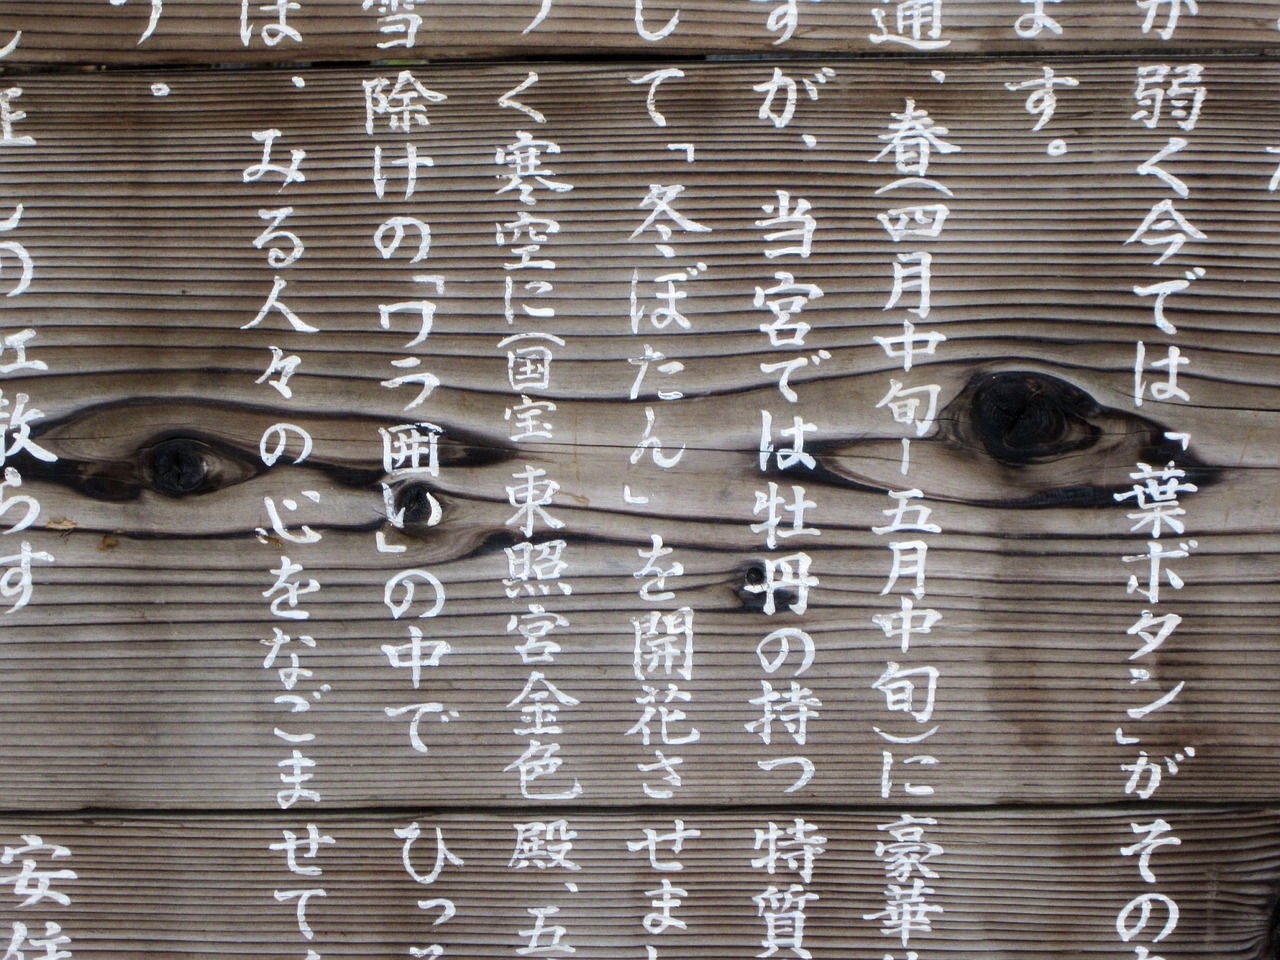 弱く今では「葉ボタン」がその
ます。
通、春(四月中旬ー五月中旬)に豪華
すが、当宮では牡丹の持つ特質
して「冬ぼたん」を開花させまし
く寒空に(国宝 東照宮金色殿、五
雪除けの「ワラ囲い」の中でひっそ
は、みる人々の心をなごませて